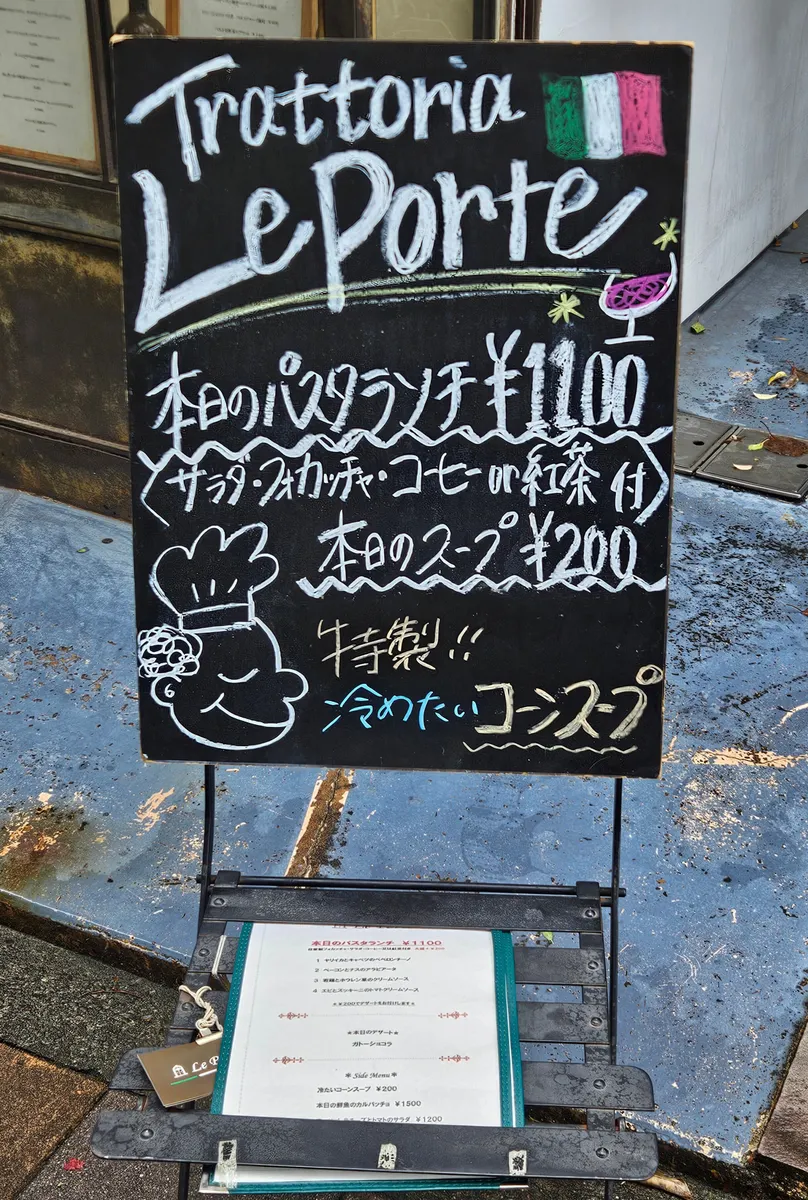 Trattoria
Le Porte
本日のパスタランチ ¥1100
サラダ・フォカッチャ・コーヒー or 紅茶 付
本日のスープ ¥200
特製!!
冷めたいコーンスープ
本日のパスタランチ ¥1100
1 ヤリイカとキャベツのペペロンチーノ
2 ベーコンとナスのアラビアータ
4 エビとズッキーニのトマトクリームソース
※本日のデザート※
ガトーショコラ
※ Side Menu ※
冷たいコーンスープ ¥200
本日の鮮魚のカルパッチョ ¥1500
トマトのサラダ ¥1200
Le P